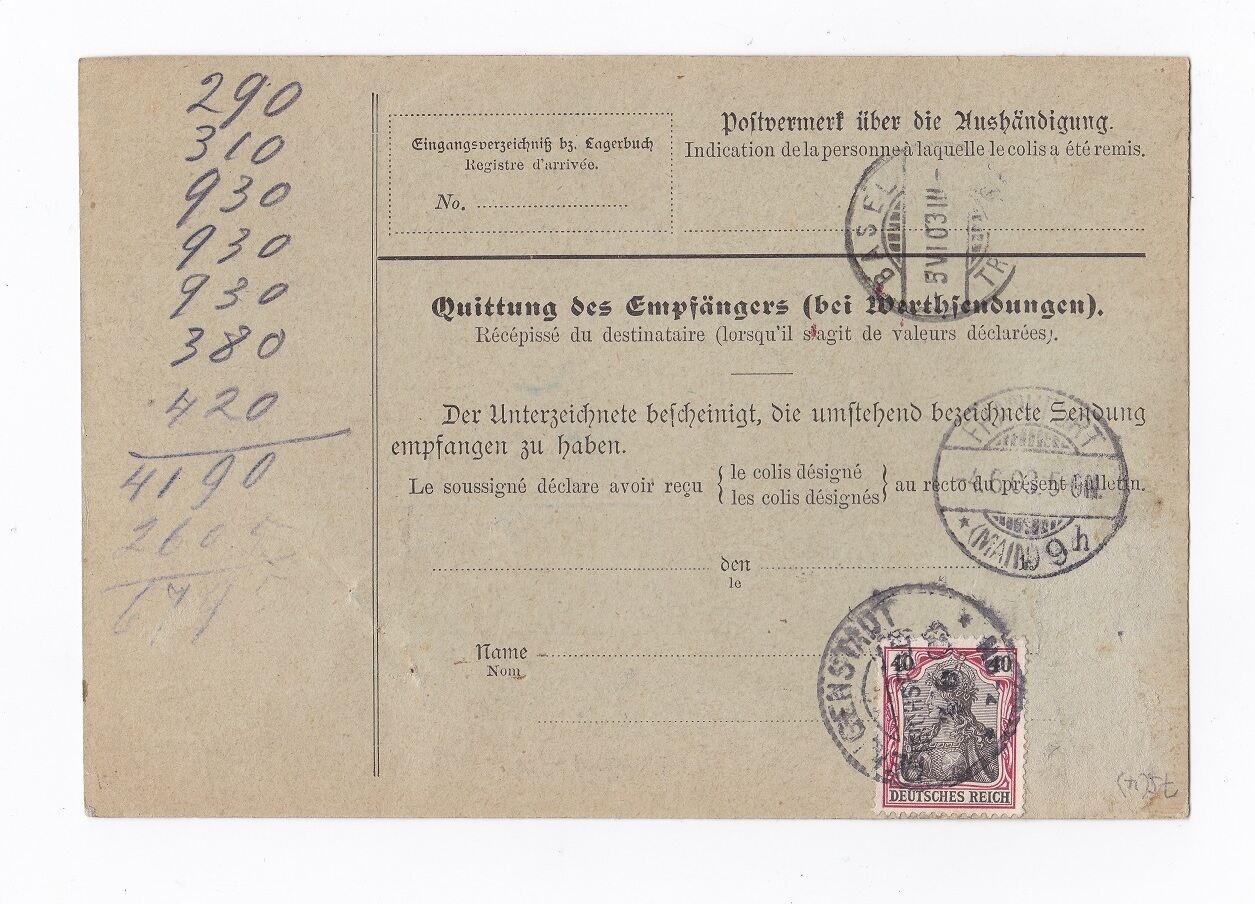 290
310
930
930
930
380
420
4190
2605
Eingangsverzeichniß bz. Lagerbuch
Registre d'arrivée.
No.
Postvermerk über die Aushändigung.
Indication de la personne à laquelle le colis a été remis.
BASEL
5 VI 03 III -
TR
Quittung des Empfängers (bei Werthsendungen).
Récépissé du destinataire (lorsqu'il s'agit de valeurs déclarées).
Der Unterzeichnete bescheinigt, die umstehend bezeichnete Sendung
empfangen zu haben.
Le soussigné déclare avoir reçu { le colis désigné
les colis désignés } au recto du présent bulletin.
FRANKFURT
-4.6.03. 5-6N.
* (MAIN) 9h
den
le
Name
Nom
40 40
DEUTSCHES REICH